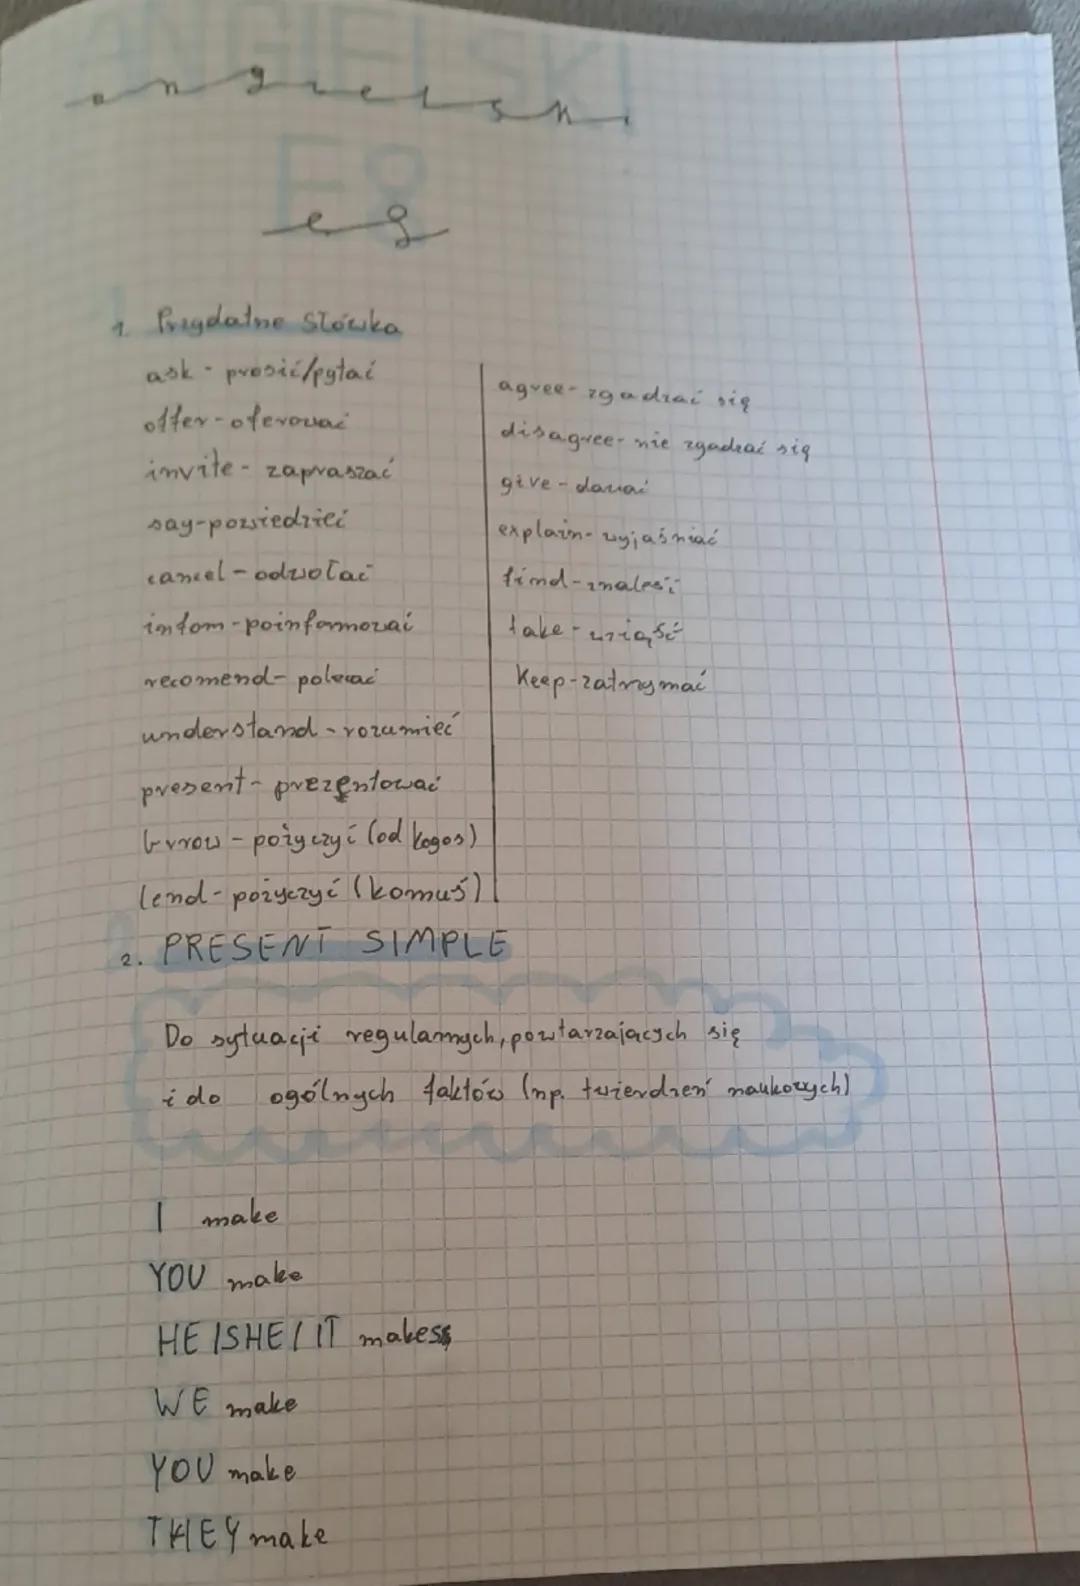 angielski
e8
1. Przydatne słówka
ask - prosić/pytać
offer - oferować
invite - zapraszać
say - powiedzieć
cancel - odwołać
infom - poinformować
recomend - polecać
understand - rozumieć
present - prezentować
brrow - pożyczyć (od kogoś)
lend - pożyczyć (komuś)
agree - zgadzać się
disagree - nie zgadzać się
give - dawać
explain - wyjaśniać
find - znaleść
take - wziąść
Keep - zatrzymać
2. PRESENT SIMPLE
Do sytuacji regularnych, powtarzających się
i do ogólnych faktów (np. twierdzeń naukowych)
I make
YOU make
HE/SHE/IT makes
WE make
YOU make
THEY make